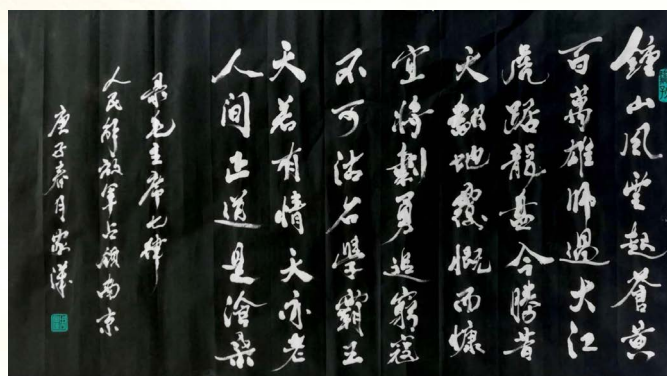 鐘山風雲起蒼黄
百萬雄師過大江
虎踞龍盤今勝昔
天翻地覆慨而慷
宜将剩勇追窮寇
不可沽名學霸王
天若有情天亦老
人间正道是滄桑
录毛主席七律
人民解放军占领南京
庚子春月家漢